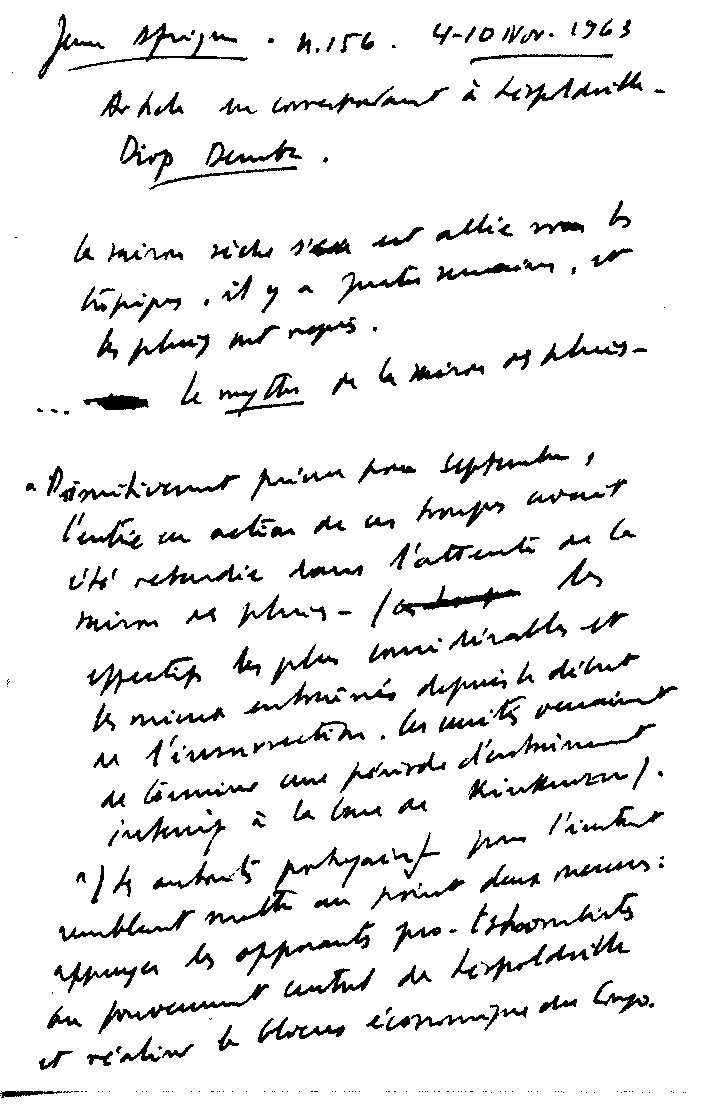 Jeune Afrique. n.156. 4-10 Nov. 1963
Article du correspondant à Léopoldville -
Diop Demba.
la saison sèche s'est allié sous les
tropiques, il y a quatre semaines, et
les pluies ont repris.
... le mythe de la saison des pluies -
"Primitivement prévue pour septembre,
l'entrée en action de ces troupes avait
été retardée dans l'attente de la
saison des pluies - ( les
effectifs les plus considérables et
les mieux entraînés depuis le début
de l'insurrection. Ces unités venaient
de terminer une période d'entraînement
intensif à la base de Kinkuzu).
") Les autorités portugaises pour l'instant
semblent mettre au point deux menaces :
appuyer les opposants pro-Tshombistes
au gouvernement central de Léopoldville
et réaliser le blocus économique du Congo.